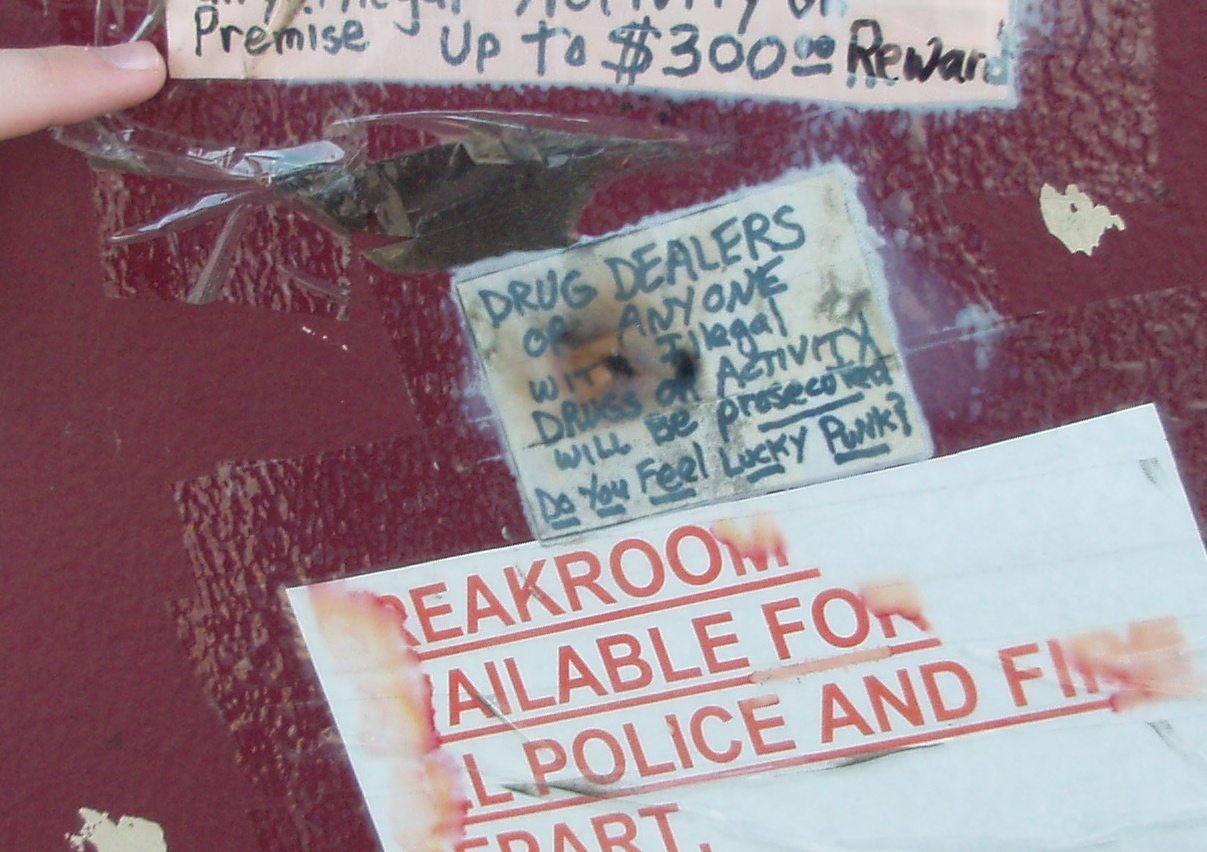 any illegal Activity on
Premise Up to $300.00 Reward
DRUG DEALERS
OR ANYONE
WITH Illegal
DRUGS OR ACTIVITY
WILL BE prosecuted
Do You Feel Lucky Punk?
REAKROOM
AILABLE FOR
L POLICE AND FIRE
EPART.